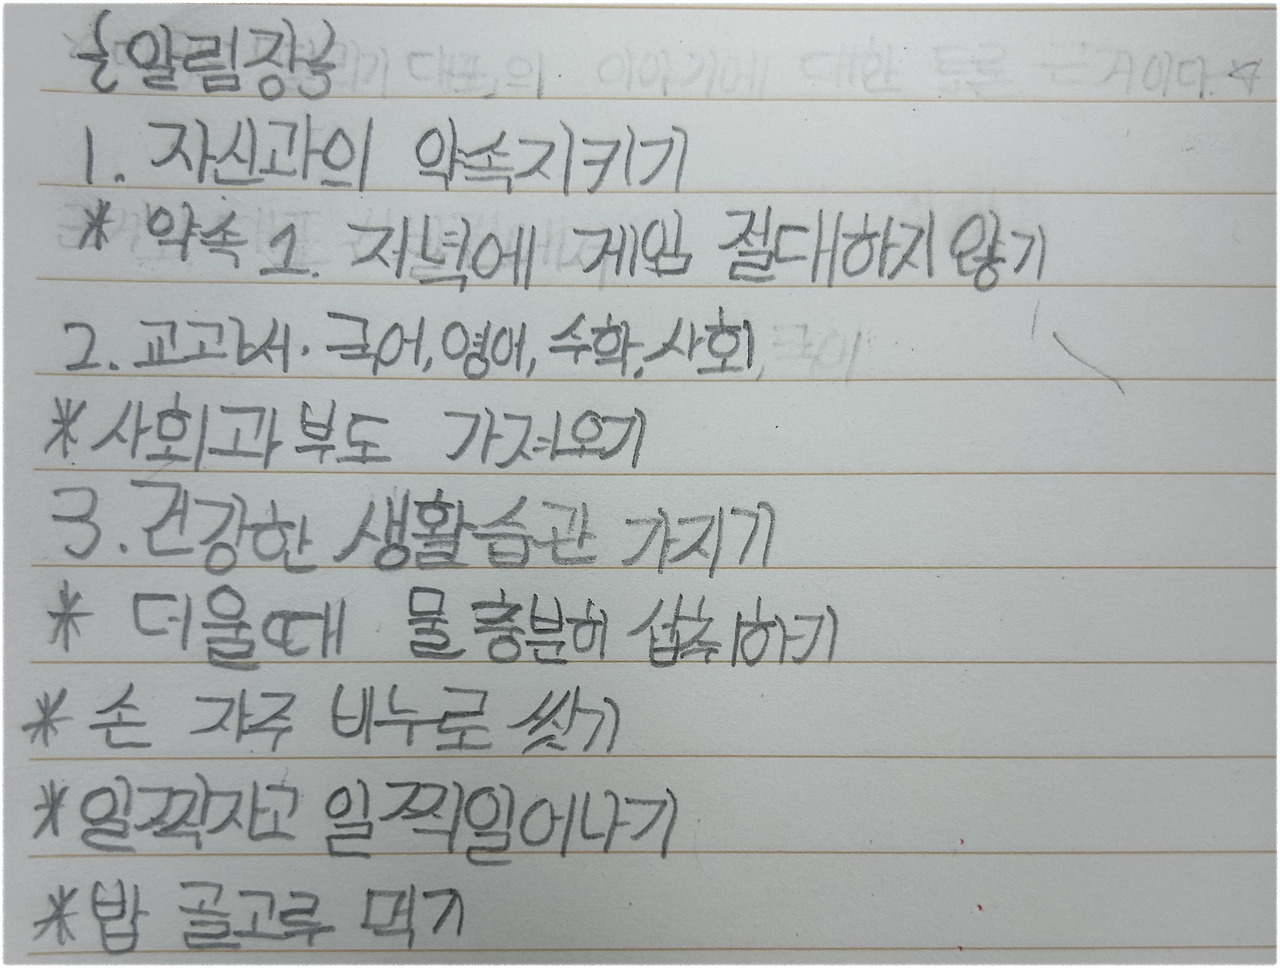 알림장
1. 자신과의 약속지키기
* 약속 1. 저녁에 게임 절대하지 않기
2. 교과서. 국어, 영어, 수학, 사회,
* 사회과 부도 가져오기
3. 건강한 생활습관 가지기
* 더울때 물 충분히 섭취하기
* 손 자주 비누로 씻기
* 일찍자고 일찍일어나기
* 밥 골고루 먹기